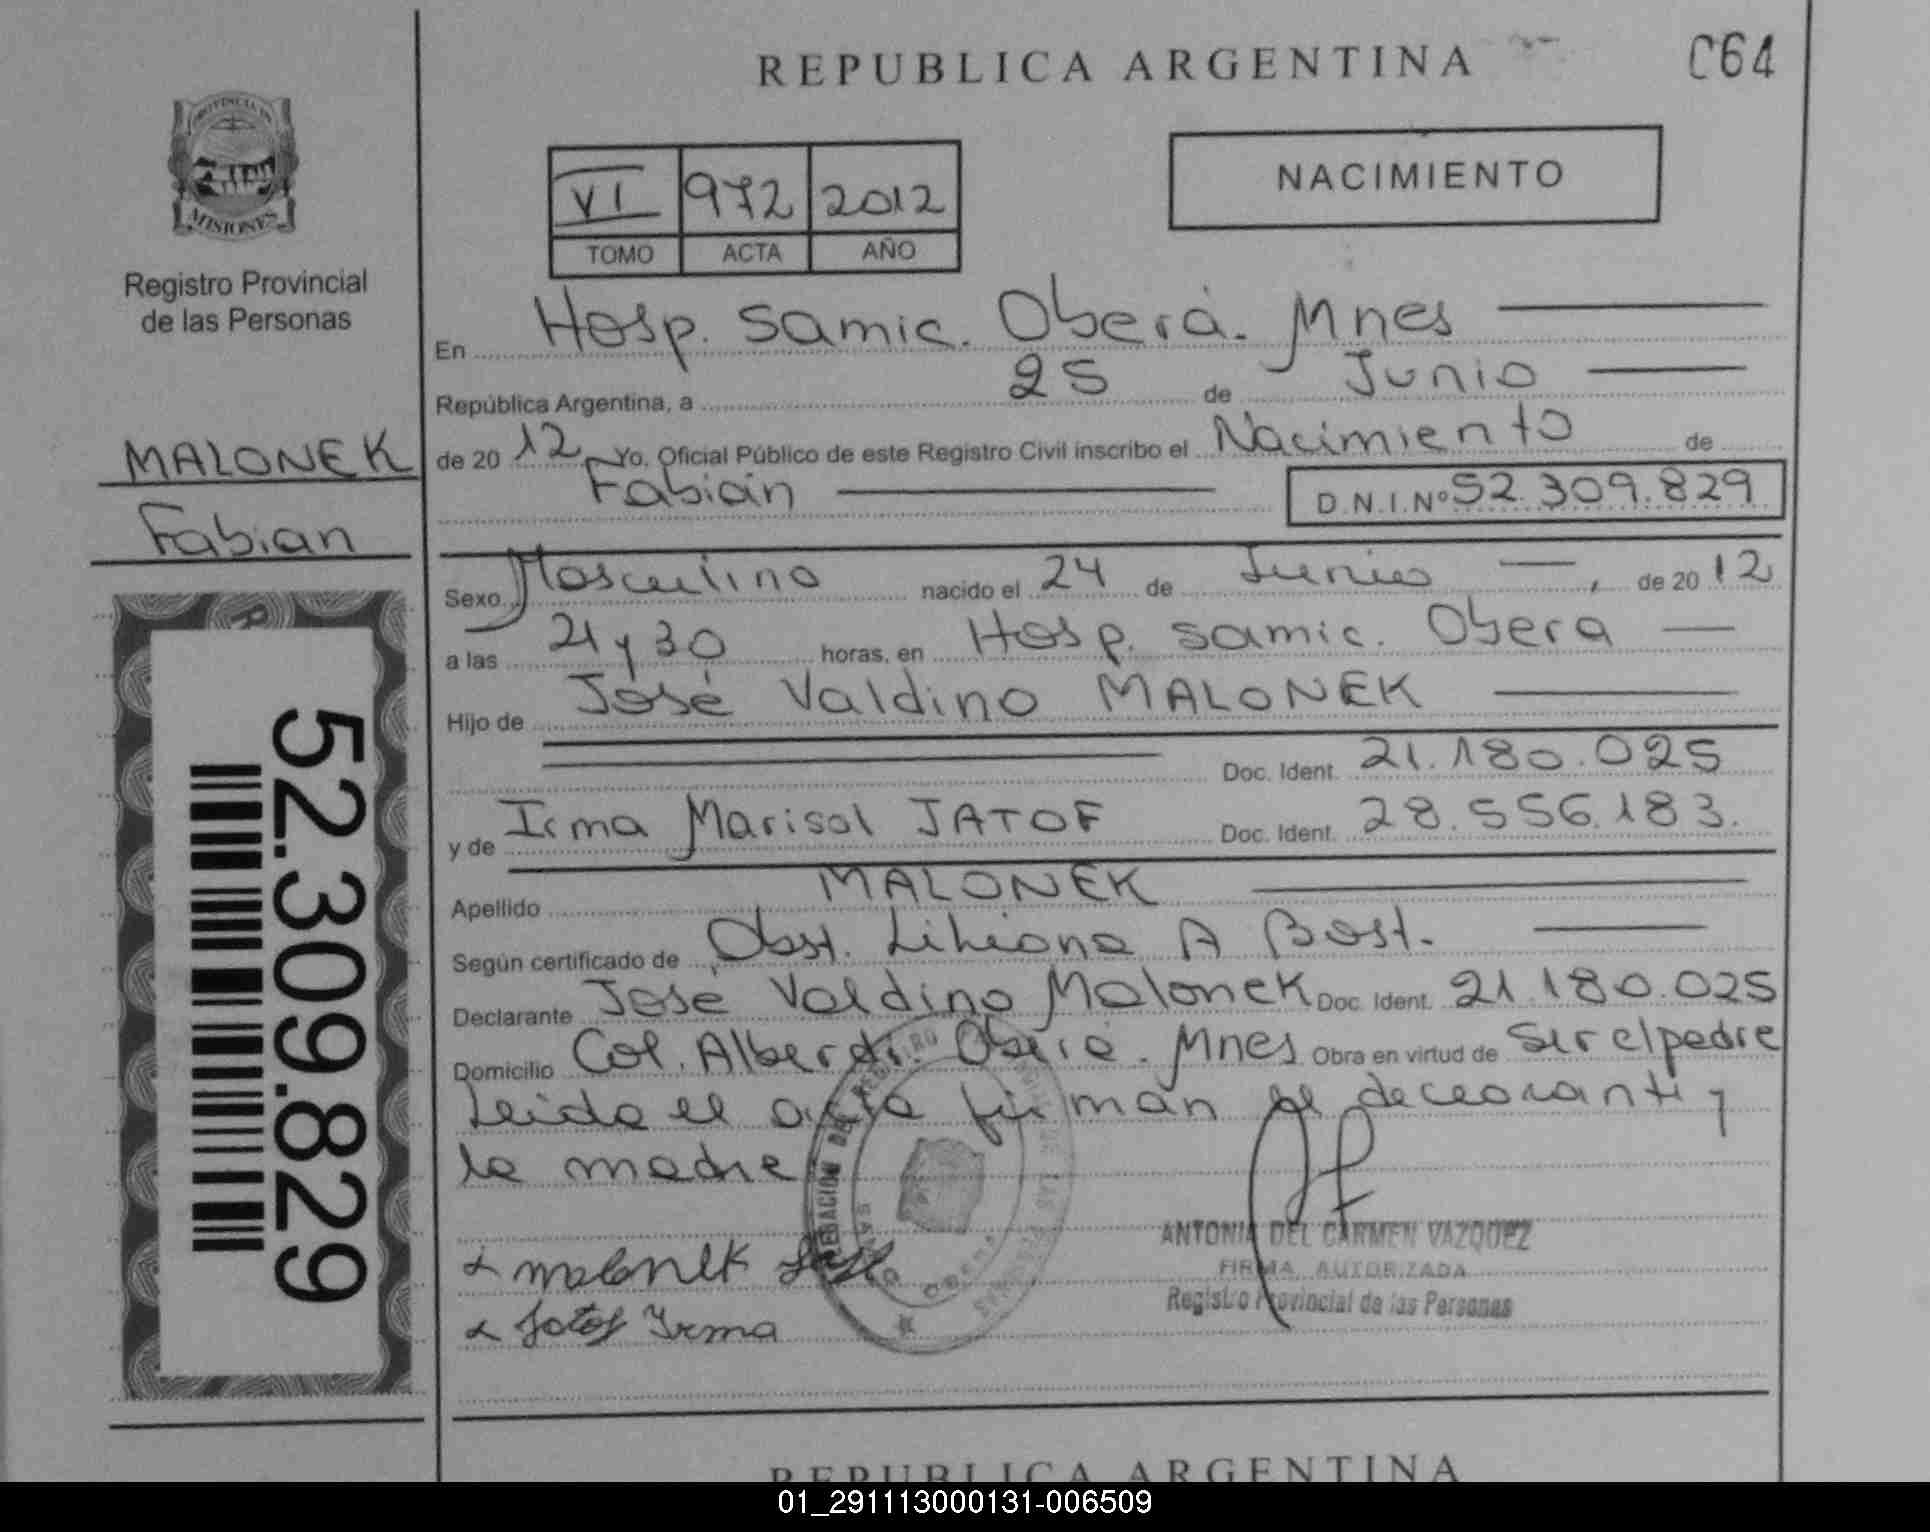 REPUBLICA ARGENTINA
C64
PROVINCIA DE
MISIONES
Registro Provincial
de las Personas
VI 972 2012
TOMO ACTA AÑO
NACIMIENTO
En Hosp. Samic. Oberá. Mnes
República Argentina, a 25 de Junio
de 2012 Yo, Oficial Público de este Registro Civil inscribo el Nacimiento de
Fabián D.N.I.Nº 52.309.829
MALONEK
Fabian
Sexo Masculino nacido el 24 de Junio, de 2012
a las 21 y 30 horas, en Hosp. Samic. Obera
Hijo de José Valdino MALONEK
Doc. Ident. 21.180.025
y de Irma Marisol JATOF Doc. Ident. 28.556.183.
Apellido MALONEK
Según certificado de Obst. Liliana A Bost.
Declarante Jose Valdino Malonek Doc. Ident. 21.180.025
Domicilio Col. Alberdi. Oberá. Mnes Obra en virtud de Ser el padre
Leida el acta firman el declarante y
la madre
52.309.829
malonek José
Jatof Irma
ANTONIA DEL CARMEN VAZQUEZ
FIRMA AUTORIZADA
Registro Provincial de las Personas
REPUBLICA ARGENTINA
01_291113000131-006509